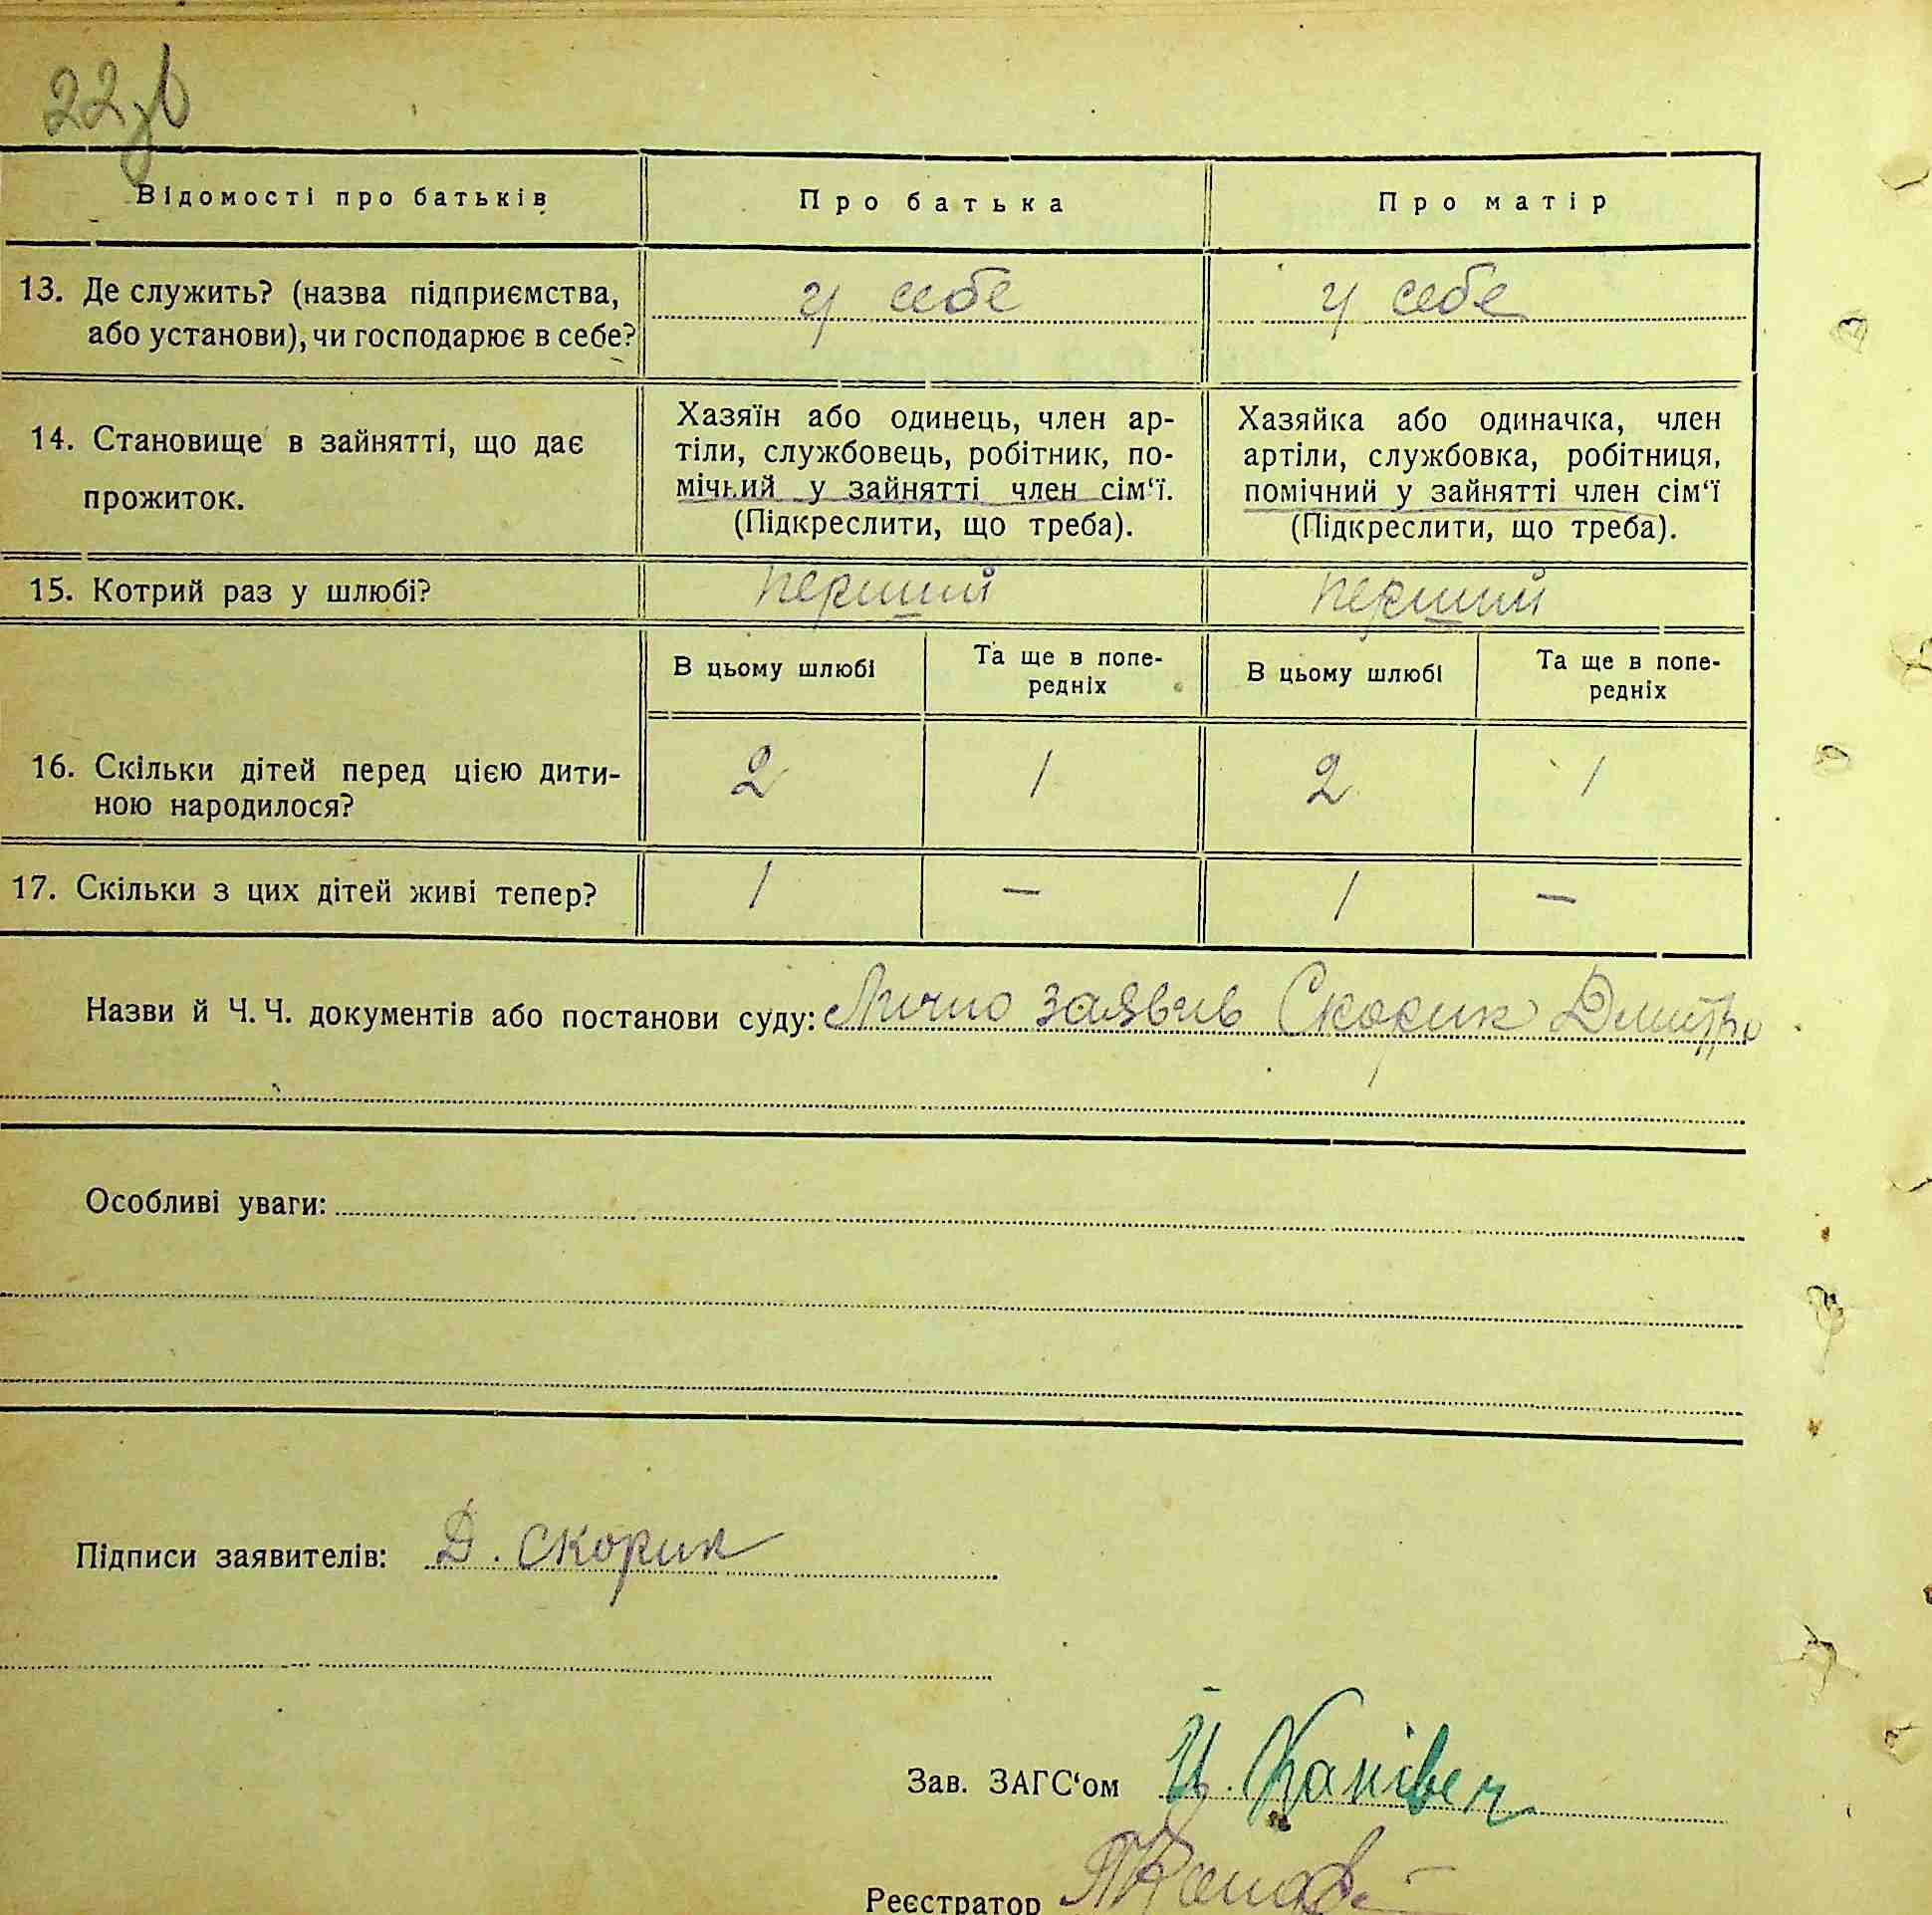 22зв
Відомості про батьків
Про батька
Про матір
13. Де служить? (назва підприємства,
або установи), чи господарює в себе?
у себе
у себе
14. Становище в зайнятті, що дає
прожиток.
Хазяїн або одинець, член ар-
тіли, службовець, робітник, по-
мічний у зайнятті член сім‘ї.
(Підкреслити, що треба).
Хазяйка або одиначка, член
артіли, службовка, робітниця,
помічний у зайнятті член сім‘ї
(Підкреслити, що треба).
15. Котрий раз у шлюбі?
перший
перший
В цьому шлюбі
Та ще в попе-
редніх
В цьому шлюбі
Та ще в попе-
редніх
16. Скільки дітей перед цією дити-
ною народилося?
2
1
2
1
17. Скільки з цих дітей живі тепер?
1
—
1
—
Назви й Ч. Ч. документів або постанови суду: Лично заявив Скорик Дмитро
Особливі уваги:
Підписи заявителів: Д. Скорик
Зав. ЗАГС‘ом Й. Канівец
Реєстратор